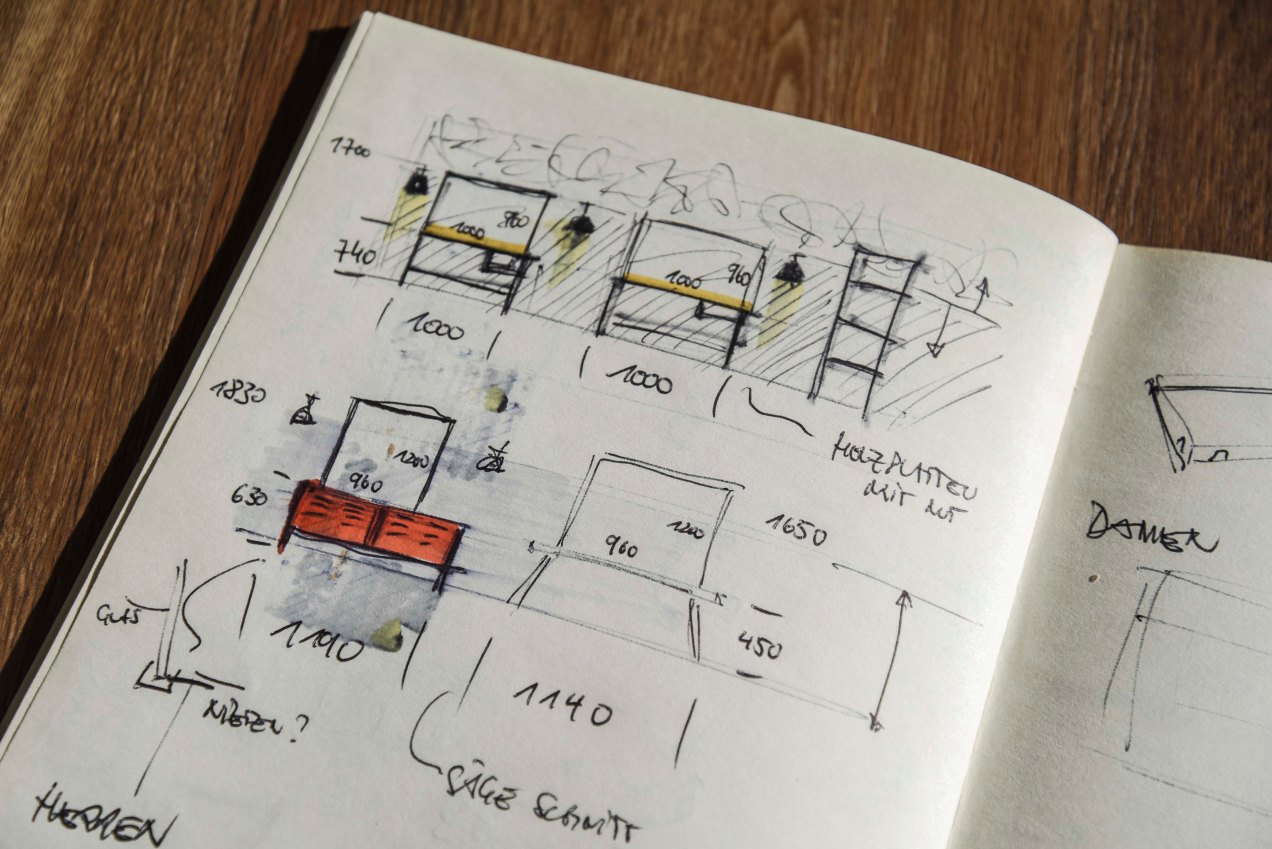 1700
960
1000
740
960
1000
1000
1000
HOLZPLATTEN
MIT
1830
1200
960
630
1200
960
1650
DAMEN
GLAS
450
1190
1140
NIETEN?
SÄGE SCHNITT
HERREN